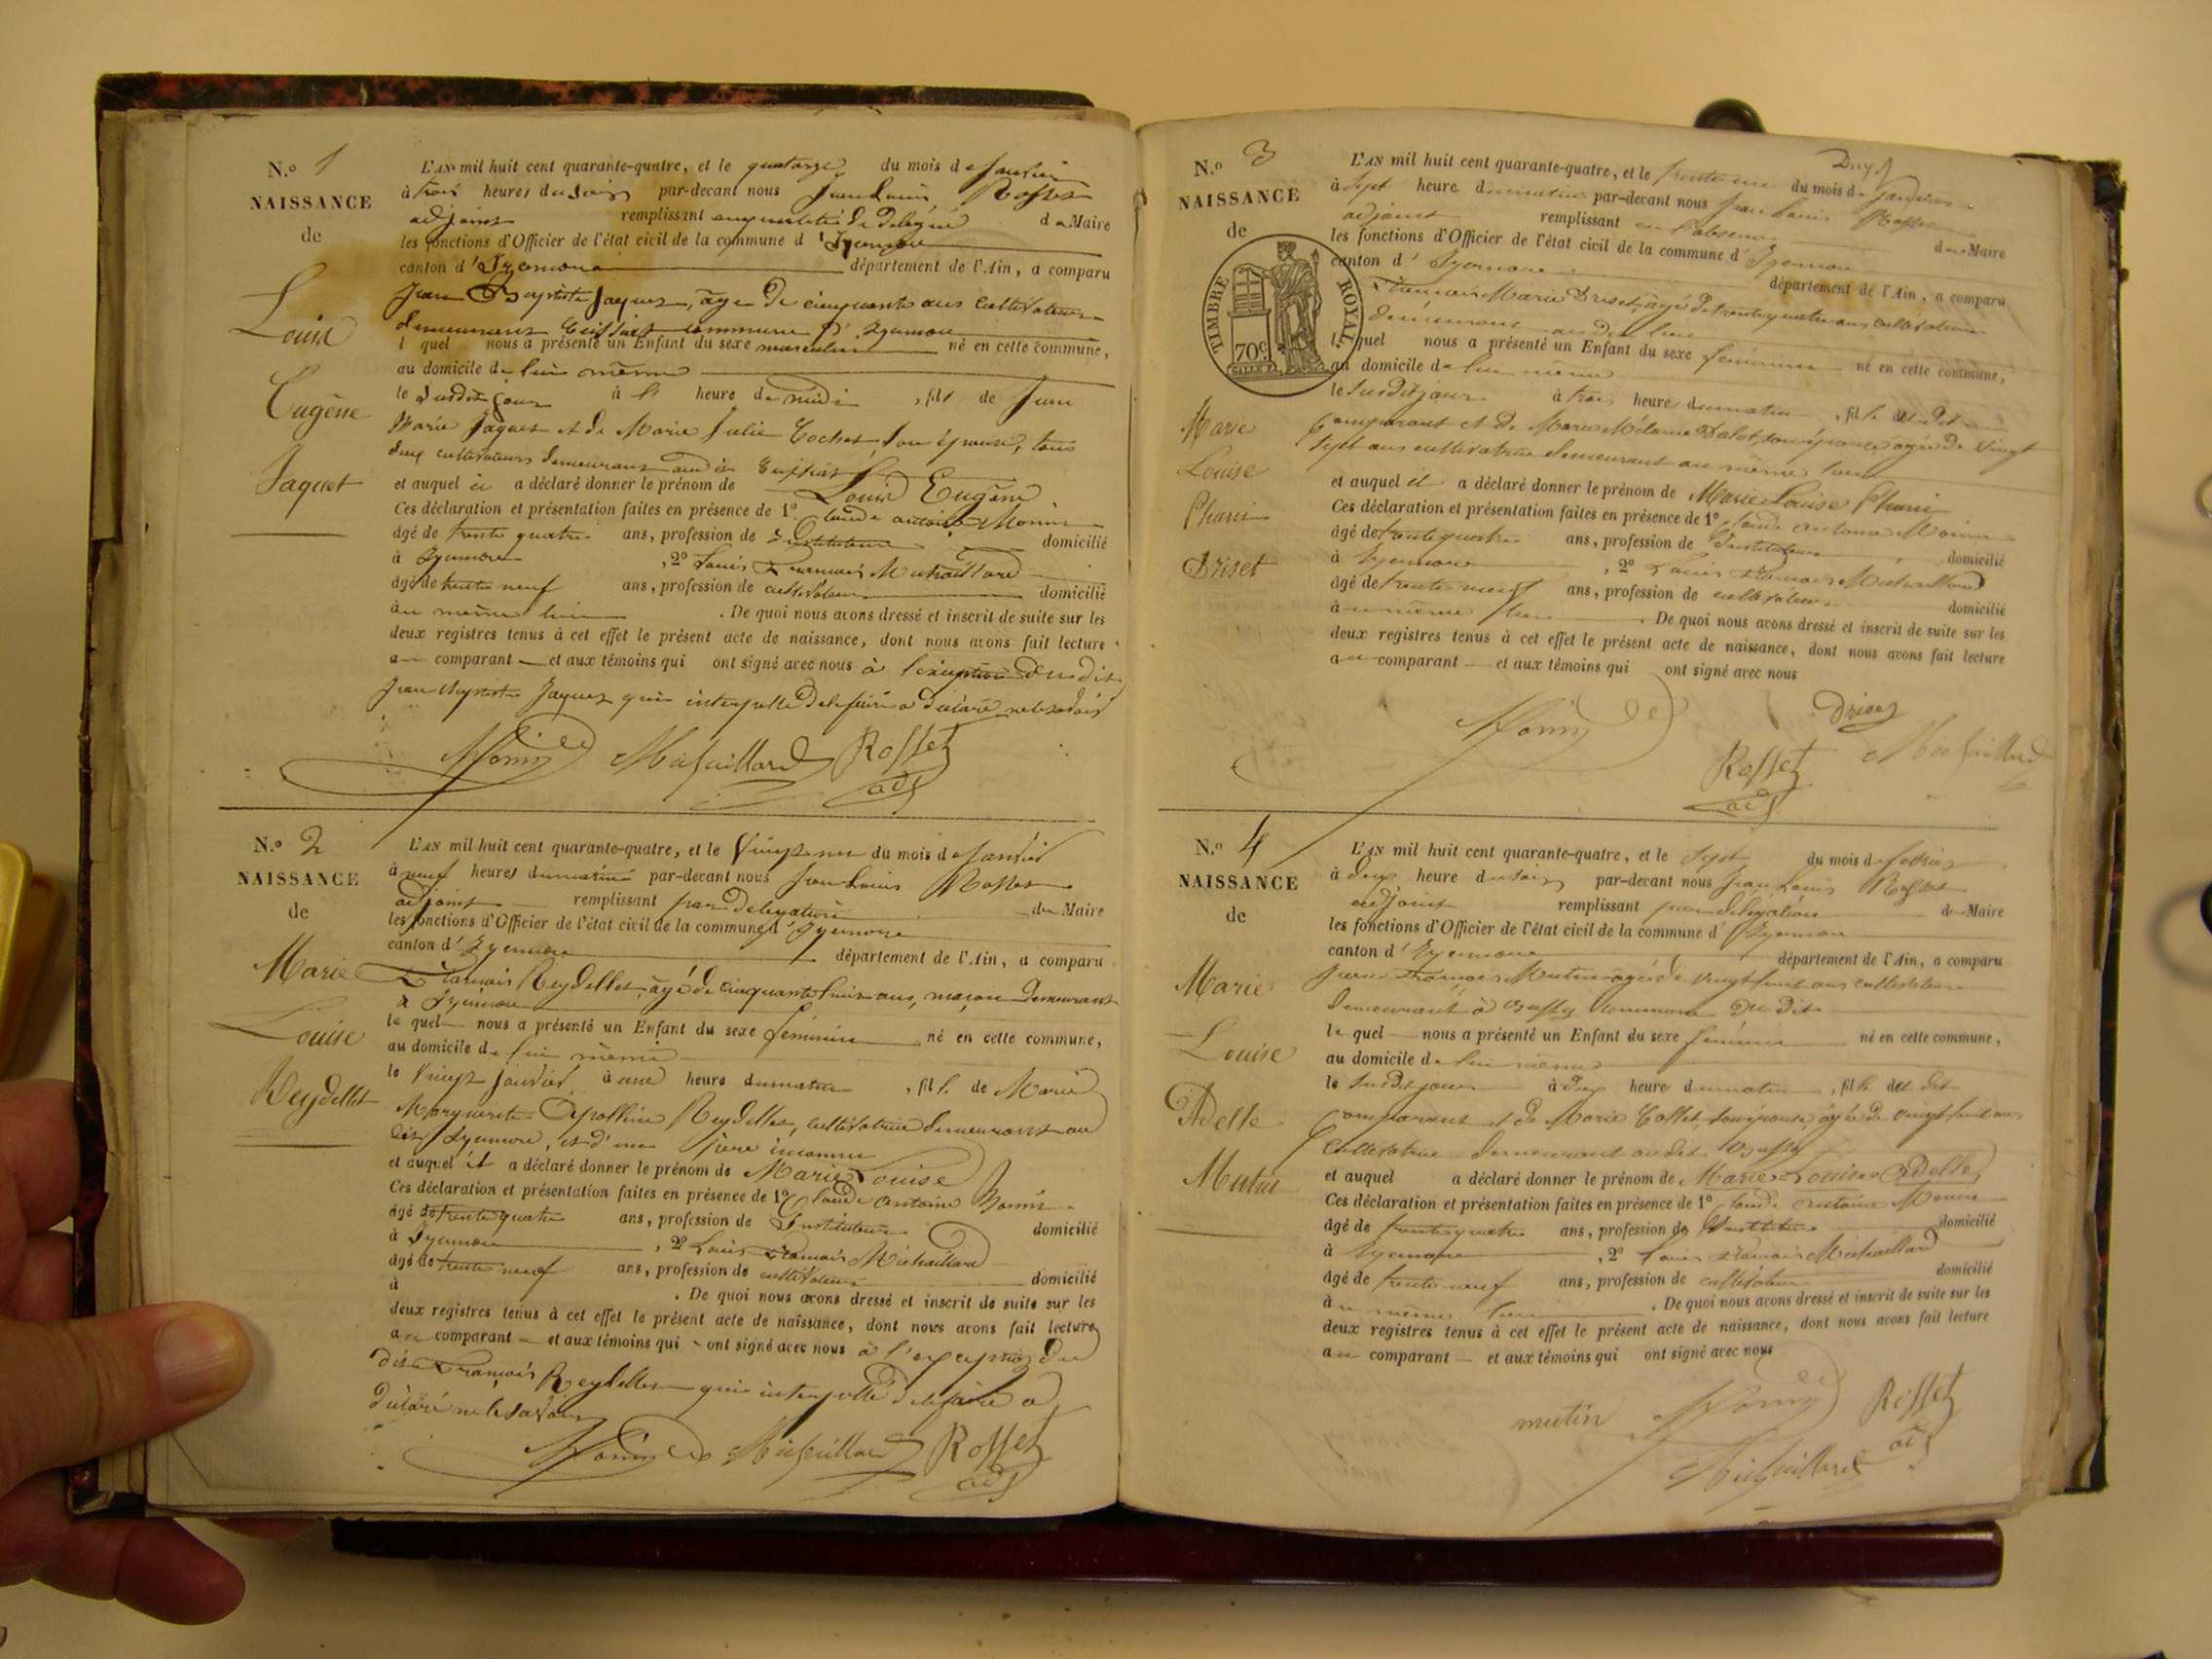 N.o 1
NAISSANCE
de
Louis
Eugène
Jaquet
L'AN mil huit cent quarante-quatre, et le quatorze du mois de Janvier
à trois heures du soir par-devant nous Jean Louis Rosset
adjoint remplissant en qualité de délégué du Maire
les fonctions d'Officier de l'état civil de la commune d'Izernore
canton d'Izernore département de l'Ain, a comparu
Jean Baptiste Jaquet, âgé de cinquante ans cultivateur
demeurant commune d'Izernore
lequel nous a présenté un Enfant du sexe masculin né en cette commune,
au domicile de lui même
le susdit jour à heure de midi, fils de Jean
Marie Jaquet et de Marie Julie Cochet son épouse, tous
deux cultivateurs demeurant au dit
et auquel il a déclaré donner le prénom de Louis Eugène
Ces déclaration et présentation faites en présence de 1º Claude antoine Monin
âgé de trente quatre ans, profession de Instituteur domicilié
à Izernore, 2º Louis François Michaillard
âgé de trente neuf ans, profession de cultivateur domicilié
au même lieu. De quoi nous avons dressé et inscrit de suite sur les
deux registres tenus à cet effet le présent acte de naissance, dont nous avons fait lecture
au comparant et aux témoins qui ont signé avec nous à l'exception du dit
Jean Baptiste Jaquet qui interpellé de le faire a déclaré ne le savoir
Monin Michaillard Rosset
adj
N.o 2
NAISSANCE
de
Marie
Louise
Reydellet
L'AN mil huit cent quarante-quatre, et le Vingt un du mois de Janvier
à neuf heures du matin par-devant nous Jean Louis Rosset
adjoint remplissant par délégation du Maire
les fonctions d'Officier de l'état civil de la commune d'Izernore
canton d'Izernore département de l'Ain, a comparu
François Reydellet, âgé de cinquante huit ans, maçon demeurant
à Izernore
lequel nous a présenté un Enfant du sexe féminin né en cette commune,
au domicile de lui même
le Vingt Janvier à une heure du matin, fille de Marie
Marguerite Apolline Reydellet, cultivatrice demeurant au
dit Izernore, et d'un père inconnu
et auquel il a déclaré donner le prénom de Marie Louise
Ces déclaration et présentation faites en présence de 1º Claude antoine Monin
âgé de trente quatre ans, profession de Instituteur domicilié
à Izernore, 2º Louis François Michaillard
âgé de trente neuf ans, profession de cultivateur domicilié
à . De quoi nous avons dressé et inscrit de suite sur les
deux registres tenus à cet effet le présent acte de naissance, dont nous avons fait lecture
au comparant et aux témoins qui ont signé avec nous à l'exception du
dit François Reydellet qui interpellé de le faire a
déclaré ne le savoir
Monin Michaillard Rosset
adj
N.o 3
NAISSANCE
de
TIMBRE ROYAL
70c
Marie
Louise
Driset
L'AN mil huit cent quarante-quatre, et le trente un du mois de Janvier
à Sept heure du matin par-devant nous Jean Louis Rosset
adjoint remplissant en l'absence du Maire
les fonctions d'Officier de l'état civil de la commune d'Izernore
canton d'Izernore département de l'Ain, a comparu
François Marie Driset, âgé de trente quatre ans cultivateur
demeurant au dit lieu
lequel nous a présenté un Enfant du sexe féminin né en cette commune,
au domicile de lui même
le susdit jour à trois heures du matin, fille du dit
Comparant et de Marie Mélanie son épouse agée de Vingt
Sept ans cultivatrice demeurant au même lieu
et auquel il a déclaré donner le prénom de Marie Louise
Ces déclaration et présentation faites en présence de 1º Claude antoine Monin
âgé de trente quatre ans, profession de Instituteur domicilié
à Izernore, 2º Louis François Michaillard
âgé de trente neuf ans, profession de cultivateur domicilié
au même lieu. De quoi nous avons dressé et inscrit de suite sur les
deux registres tenus à cet effet le présent acte de naissance, dont nous avons fait lecture
au comparant et aux témoins qui ont signé avec nous
Monin Driset
Rosset Michaillard
adj
N.o 4
NAISSANCE
de
Marie
Louise
Adelle
Mutin
L'AN mil huit cent quarante-quatre, et le Sept du mois de février
à deux heure du soir par-devant nous Jean Louis Rosset
adjoint remplissant par délégation du Maire
les fonctions d'Officier de l'état civil de la commune d'Izernore
canton d'Izernore département de l'Ain, a comparu
François Mutin âgé de vingt huit ans cultivateur
demeurant à commune du dit
lequel nous a présenté un Enfant du sexe féminin né en cette commune,
au domicile de lui même
le susdit jour à deux heure du matin, fille du dit
comparant et de Marie Collet son épouse âgée de vingt huit ans
Cultivatrice demeurant au dit
et auquel a déclaré donner le prénom de Marie Louise Adelle
Ces déclaration et présentation faites en présence de 1º Claude antoine Monin
âgé de trente quatre ans, profession de Instituteur domicilié
à Izernore, 2º Louis François Michaillard
âgé de trente neuf ans, profession de cultivateur domicilié
au même lieu. De quoi nous avons dressé et inscrit de suite sur les
deux registres tenus à cet effet le présent acte de naissance, dont nous avons fait lecture
au comparant et aux témoins qui ont signé avec nous
mutin Monin Rosset
Michaillard adj